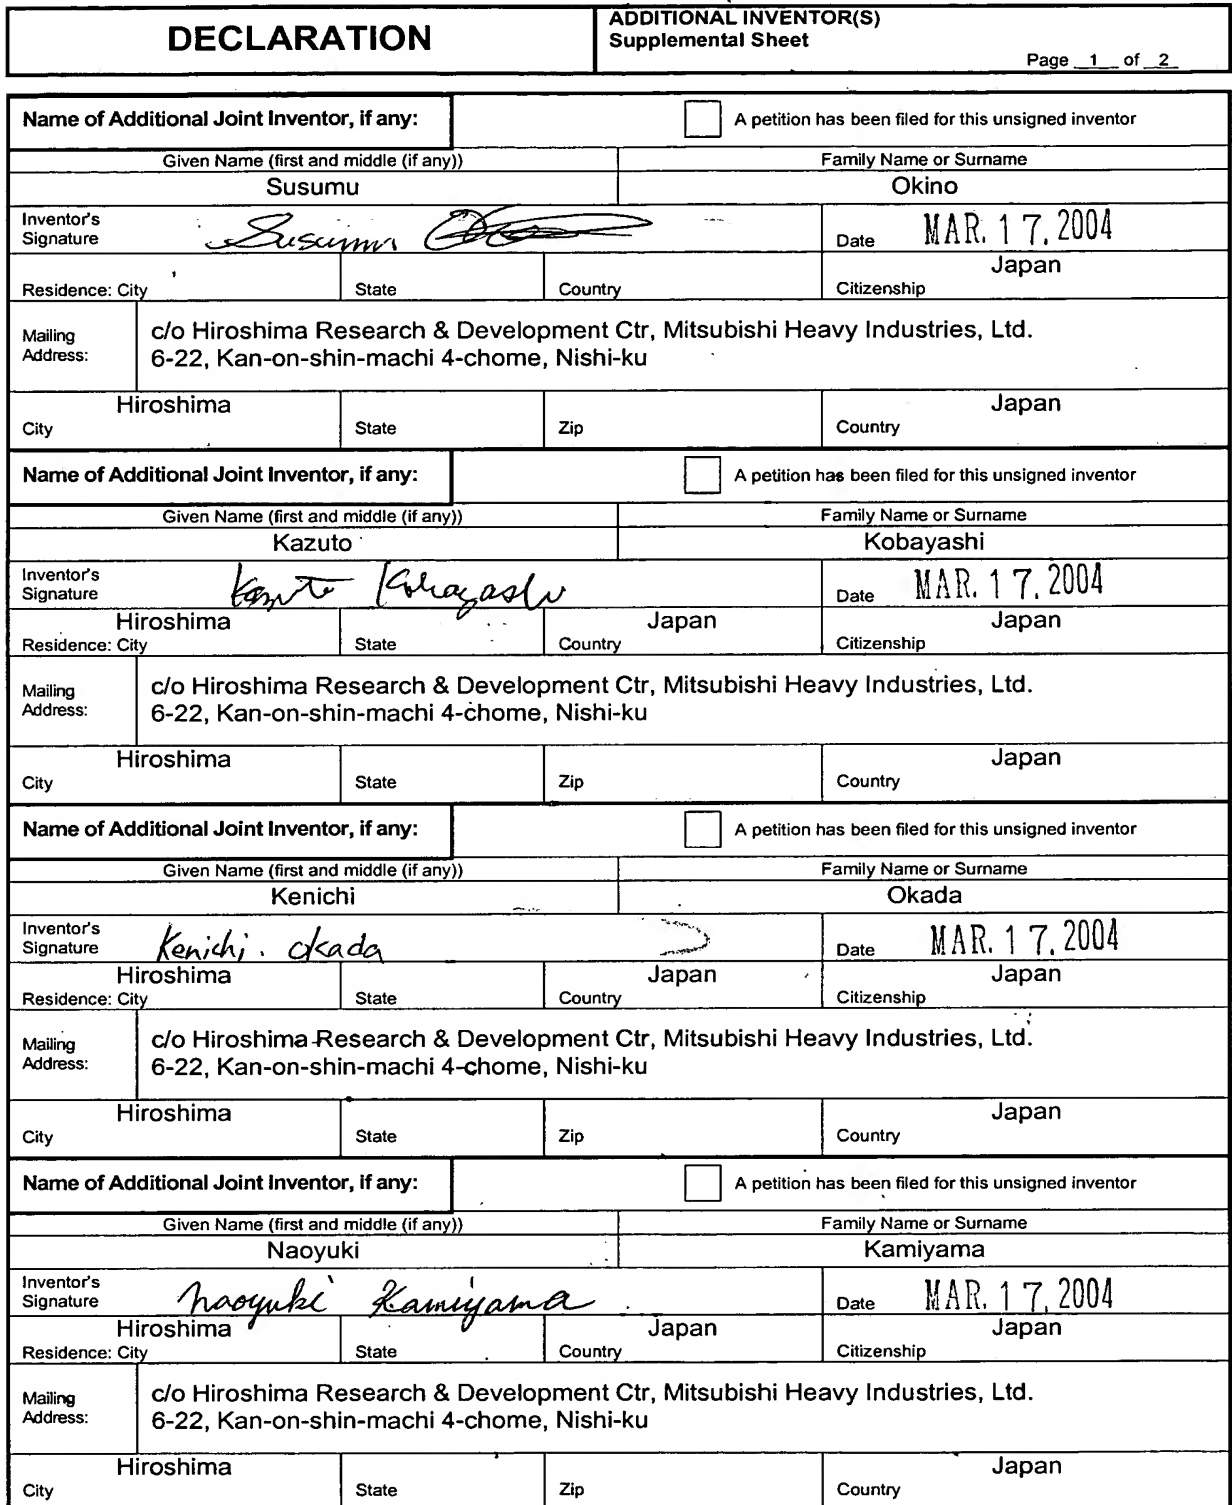 DECLARATION
ADDITIONAL INVENTOR(S)
Supplemental Sheet
Page 1 of 2
Name of Additional Joint Inventor, if any:
A petition has been filed for this unsigned inventor
Given Name (first and middle (if any))
Family Name or Surname
Susumu
Okino
Inventor's
Signature
Susumu
Date
MAR. 17. 2004
Residence: City
State
Country
Japan
Citizenship
Mailing
Address:
c/o Hiroshima Research & Development Ctr, Mitsubishi Heavy Industries, Ltd.
6-22, Kan-on-shin-machi 4-chome, Nishi-ku
Hiroshima
City
State
Zip
Japan
Country
Name of Additional Joint Inventor, if any:
A petition has been filed for this unsigned inventor
Given Name (first and middle (if any))
Family Name or Surname
Kazuto
Kobayashi
Inventor's
Signature
Kazuto Kobayashi
Date
MAR. 17. 2004
Hiroshima
Residence: City
State
Japan
Country
Japan
Citizenship
Mailing
Address:
c/o Hiroshima Research & Development Ctr, Mitsubishi Heavy Industries, Ltd.
6-22, Kan-on-shin-machi 4-chome, Nishi-ku
Hiroshima
City
State
Zip
Japan
Country
Name of Additional Joint Inventor, if any:
A petition has been filed for this unsigned inventor
Given Name (first and middle (if any))
Family Name or Surname
Kenichi
Okada
Inventor's
Signature
Kenichi. Okada
Date
MAR. 17. 2004
Hiroshima
Residence: City
State
Japan
Country
Japan
Citizenship
Mailing
Address:
c/o Hiroshima Research & Development Ctr, Mitsubishi Heavy Industries, Ltd.
6-22, Kan-on-shin-machi 4-chome, Nishi-ku
Hiroshima
City
State
Zip
Japan
Country
Name of Additional Joint Inventor, if any:
A petition has been filed for this unsigned inventor
Given Name (first and middle (if any))
Family Name or Surname
Naoyuki
Kamiyama
Inventor's
Signature
Naoyuki Kamiyama
Date
MAR. 17. 2004
Hiroshima
Residence: City
State
Japan
Country
Japan
Citizenship
Mailing
Address:
c/o Hiroshima Research & Development Ctr, Mitsubishi Heavy Industries, Ltd.
6-22, Kan-on-shin-machi 4-chome, Nishi-ku
Hiroshima
City
State
Zip
Japan
Country